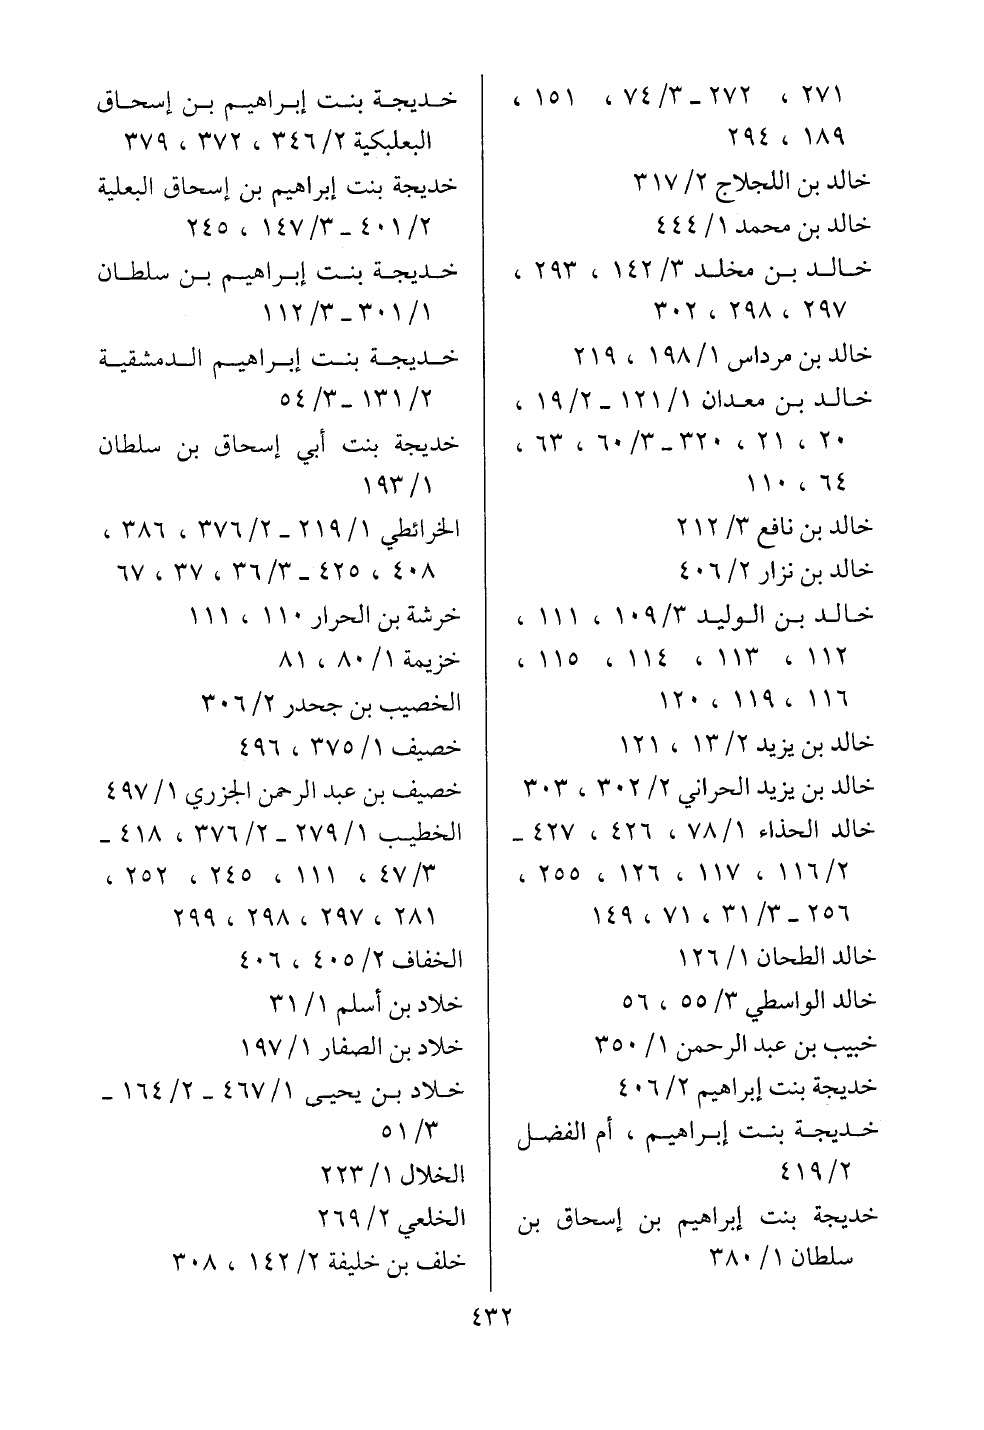 ٢٧١ ، ٢٧٢ ـ ٣/ ٧٤ ، ١٥١ ،
١٨٩ ، ٢٩٤
خالد بن اللجلاج ٢/ ٣١٧
خالد بن محمد ١/ ٤٤٤
خالد بن مخلد ٣/ ١٤٢ ، ٢٩٣ ،
٢٩٧ ، ٢٩٨ ، ٣٠٢
خالد بن مرداس ١/ ١٩٨ ، ٢١٩
خالد بن معدان ١/ ١٢١ ـ ٢/ ١٩ ،
٢٠ ، ٢١ ، ٣٢٠ ـ ٣/ ٦٠ ، ٦٣ ،
٦٤ ، ١١٠
خالد بن نافع ٣/ ٢١٢
خالد بن نزار ٢/ ٤٠٦
خالد بن الوليد ٣/ ١٠٩ ، ١١١ ،
١١٢ ، ١١٣ ، ١١٤ ، ١١٥ ،
١١٦ ، ١١٩ ، ١٢٠
خالد بن يزيد ٢/ ١٣ ، ١٢١
خالد بن يزيد الحراني ٢/ ٣٠٢ ، ٣٠٣
خالد الحذاء ١/ ٧٨ ، ٤٢٦ ، ٤٢٧ ـ
٢/ ١١٦ ، ١١٧ ، ١٢٦ ، ٢٥٥ ،
٢٥٦ ـ ٣/ ٣١ ، ٧١ ، ١٤٩
خالد الطحان ١/ ١٢٦
خالد الواسطي ٣/ ٥٥ ، ٥٦
خبيب بن عبد الرحمن ١/ ٣٥٠
خديجة بنت إبراهيم ٢/ ٤٠٦
خديجة بنت إبراهيم ، أم الفضل
٢/ ٤١٩
خديجة بنت إبراهيم بن إسحاق بن
سلطان ١/ ٣٨٠
خديجة بنت إبراهيم بن إسحاق
البعلبكية ٢/ ٣٤٦ ، ٣٧٢ ، ٣٧٩
خديجة بنت إبراهيم بن إسحاق البعلية
٢/ ٤٠١ ـ ٣/ ١٤٧ ، ٢٤٥
خديجة بنت إبراهيم بن سلطان
١/ ٣٠١ ـ ٣/ ١١٢
خديجة بنت إبراهيم الدمشقية
٢/ ١٣١ ـ ٣/ ٥٤
خديجة بنت أبي إسحاق بن سلطان
١/ ١٩٣
الخرائطي ١/ ٢١٩ ـ ٢/ ٣٧٦ ، ٣٨٦ ،
٤٠٨ ، ٤٢٥ ـ ٣/ ٣٦ ، ٣٧ ، ٦٧
خرشة بن الحرار ١١٠ ، ١١١
خزيمة ١/ ٨٠ ، ٨١
الخصيب بن جحدر ٢/ ٣٠٦
خصيف ١/ ٣٧٥ ، ٤٩٦
خصيف بن عبد الرحمن الجزري ١/ ٤٩٧
الخطيب ١/ ٢٧٩ ـ ٢/ ٣٧٦ ، ٤١٨ ـ
٣/ ٤٧ ، ١١١ ، ٢٤٥ ، ٢٥٢ ،
٢٨١ ، ٢٩٧ ، ٢٩٨ ، ٢٩٩
الخفاف ٢/ ٤٠٥ ، ٤٠٦
خلاد بن أسلم ١/ ٣١
خلاد بن الصفار ١/ ١٩٧
خلاد بن يحيى ١/ ٤٦٧ ـ ٢/ ١٦٤ ـ
٣/ ٥١
الخلال ١/ ٢٢٣
الخلعي ٢/ ٢٦٩
خلف بن خليفة ٢/ ١٤٢ ، ٣٠٨
٤٣٢